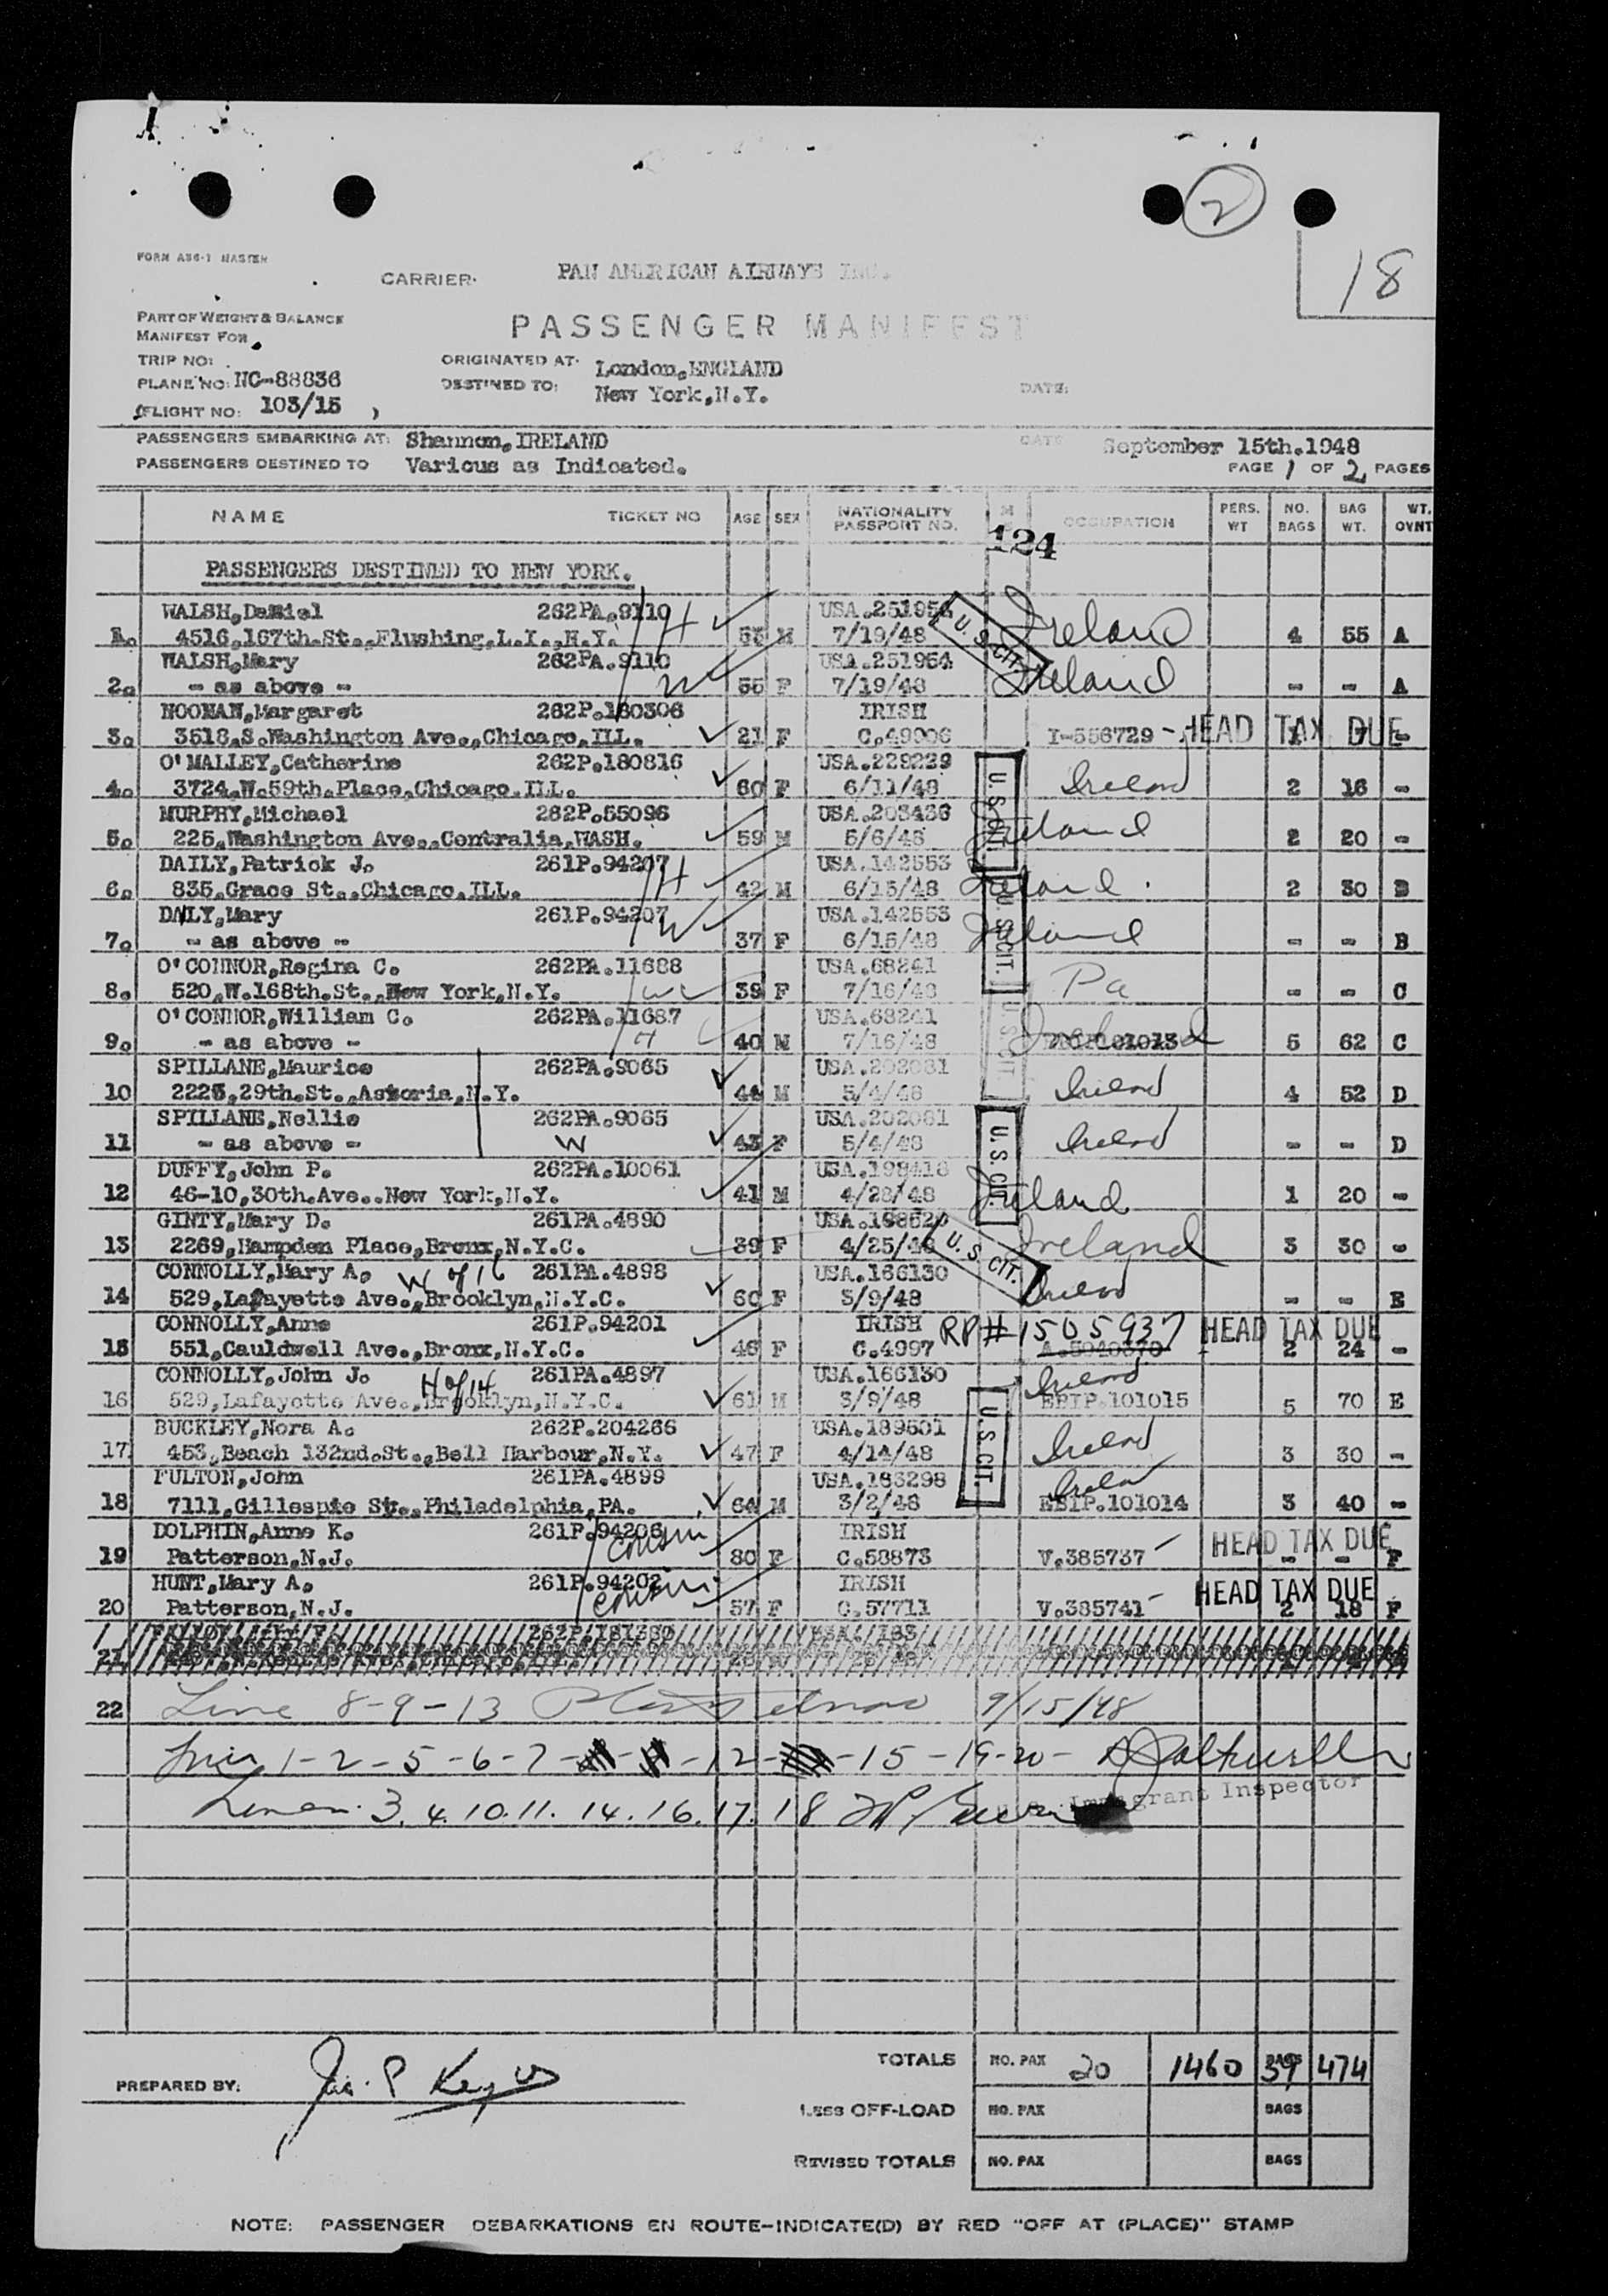 2
18
FORM AS6-1 MASTER
CARRIER: PAN AMERICAN AIRWAYS INC.
PART OF WEIGHT & BALANCE
MANIFEST FOR
PASSENGER MANIFEST
TRIP NO:
ORIGINATED AT: London,ENGLAND
PLANE NO: NC-88836
DESTINED TO: New York,N.Y.
DATE:
(FLIGHT NO: 103/15 )
PASSENGERS EMBARKING AT: Shannon,IRELAND DATE September 15th.1948
PASSENGERS DESTINED TO Various as Indicated. PAGE 1 OF 2 PAGES
NAME TICKET NO AGE SEX NATIONALITY PASSPORT NO. OCCUPATION PERS. WT NO. BAGS BAG WT. WT. OVNT
124
PASSENGERS DESTINED TO NEW YORK.
WALSH,Daniel 262PA.9110 USA.251954 U.S. CIT. Ireland
1. 4516,167th.St.,Flushing,L.I.,N.Y. H M 7/19/48 4 55 A
WALSH,Mary 262PA.9110 USA.251954 Ireland
2. - as above - W 55 F 7/19/48 - - A
NOONAN,Margaret 262P.180306 IRISH
3. 3518,S.Washington Ave.,Chicago,ILL. 21 F C.49006 I-556729 - HEAD TAX DUE -
O'MALLEY,Catherine 262P.180816 USA.229229 U.S. CIT. Ireland
4. 3724,W.59th.Place,Chicago,ILL. 60 F 6/11/48 2 16 -
MURPHY,Michael 262P.55096 USA.203436 Ireland
5. 225,Washington Ave.,Centralia,WASH. 59 M 5/6/48 2 20 -
DAILY,Patrick J. 261P.94207 USA.142553 Ireland
6. 835,Grace St.,Chicago,ILL. H 42 M 6/15/48 2 30 B
DALY,Mary 261P.94207 USA.142553 U.S. CIT. Ireland
7. - as above - W 37 F 6/15/48 - - B
O'CONNOR,Regina C. 262PA.11688 USA.68241 Pa
8. 520,W.168th.St.,New York,N.Y. W 39 F 7/16/48 - - C
O'CONNOR,William C. 262PA.11687 USA.68241 U.S. CIT. Ireland
9. - as above - H 40 M 7/16/48 5 62 C
SPILLANE,Maurice 262PA.9065 USA.202081 Ireland
10 2225,29th.St.,Astoria,N.Y. 44 M 5/4/48 4 52 D
SPILLANE,Nellie 262PA.9065 USA.202081 U.S. CIT. Ireland
11 - as above - W 43 F 5/4/48 - - D
DUFFY,John P. 262PA.10061 USA.198418 Ireland
12 46-10,30th.Ave..New York,N.Y. 41 M 4/28/48 1 20 -
GINTY,Mary D. 261PA.4890 U.S. CIT. Ireland
13 2269,Hampden Place,Bronx,N.Y.C. 39 F 3 30 -
CONNOLLY,Mary A. W of 16 261PA.4898 USA.166130 Ireland
14 529,Lafayette Ave.,Brooklyn,N.Y.C. 60 F 3/9/48 - - E
CONNOLLY,Anne 261P.94201 IRISH RP# 1505937 HEAD TAX DUE
15 551,Cauldwell Ave.,Bronx,N.Y.C. 46 F C.4997 2 24 -
CONNOLLY,John J. H of 14 261PA.4897 USA.166130 Ireland
16 529,Lafayette Ave.,Brooklyn,N.Y.C. 61 M 3/9/48 EBIP.101015 5 70 E
BUCKLEY,Nora A. 262P.204266 USA.189501 U.S. CIT. Ireland
17 453,Beach 132nd.St.,Bell Harbour,N.Y. 47 F 4/14/48 3 30 -
FULTON,John 261PA.4899 USA.183298 Ireland
18 7111,Gillespie St.,Philadelphia,PA. 64 M 3/2/48 EBIP.101014 3 40 -
DOLPHIN,Anne K. 261P.94206 cousin IRISH HEAD TAX DUE
19 Patterson,N.J. 80 F C.58873 V.385737 - - F
HUNT,Mary A. 261P.94202 cousin IRISH HEAD TAX DUE
20 Patterson,N.J. 57 F C.57711 V.385741 2 18 F
21
22 Line 8-9-13 9/15/48
1-2-5-6-7- -12- -15-19-20-
Immigrant Inspector
3. 4. 10. 11. 14. 16. 17. 18
PREPARED BY: Jas. P Keyes
TOTALS NO. PAX 20 1460 BAGS 39 474
LESS OFF-LOAD NO. PAX BAGS
REVISED TOTALS NO. PAX BAGS
NOTE: PASSENGER DEBARKATIONS EN ROUTE-INDICATE(D) BY RED "OFF AT (PLACE)" STAMP